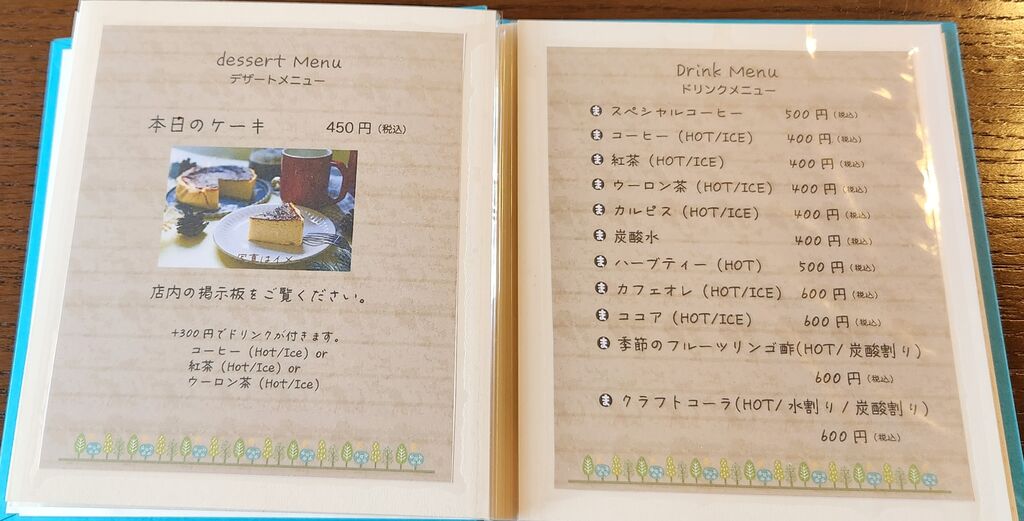 dessert Menu
デザートメニュー
本日のケーキ 450円(税込)
写真はイメ
店内の掲示板をご覧ください。
+300円でドリンクが付きます。
コーヒー (Hot/Ice) or
紅茶 (Hot/Ice) or
ウーロン茶 (Hot/Ice)
Drink Menu
ドリンクメニュー
ま スペシャルコーヒー 500円(税込)
ま コーヒー (HOT/ICE) 400円(税込)
ま 紅茶 (HOT/ICE) 400円(税込)
ま ウーロン茶 (HOT/ICE) 400円(税込)
ま カルピス (HOT/ICE) 400円(税込)
ま 炭酸水 400円(税込)
ま ハーブティー (HOT) 500円(税込)
ま カフェオレ (HOT/ICE) 600円(税込)
ま ココア (HOT/ICE) 600円(税込)
ま 季節のフルーツリンゴ酢(HOT/ 炭酸割り)
600円(税込)
ま クラフトコーラ(HOT/ 水割り / 炭酸割り)
600円(税込)